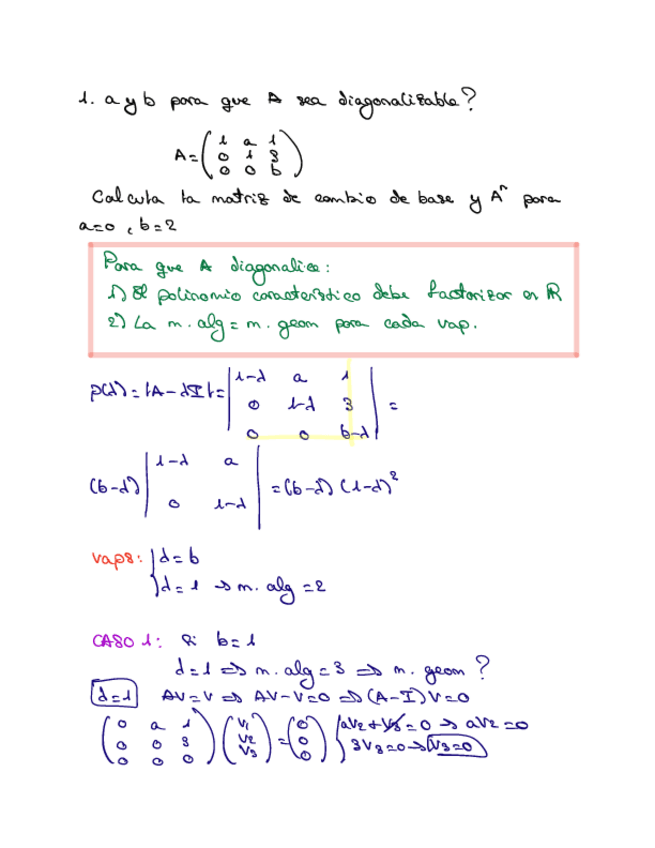 1. a y b para que A sea diagonalizable?
A = ( 1 a 1
0 1 3
0 0 b )
Calcula la matriz de cambio de base y Aⁿ para
a=0, b=2
Para que A diagonalice:
1) El polinomio característico debe factorizar en R
2) La m. alg = m. geom para cada vap.
p(λ) = |A-λI| = | 1-λ a 1
0 1-λ 3 | =
0 0 b-λ |
(b-λ) | 1-λ a
0 1-λ | = (b-λ)(1-λ)²
vaps: { λ = b
λ = 1 → m. alg = 2
CASO 1: Si b=1
λ=1 ⇒ m. alg = 3 ⇒ m. geom?
λ=1 AV=V ⇒ AV-V=0 ⇒ (A-I)V=0
( 0 a 1 ) ( V1 ) = ( 0 ) { aV2 + V3 = 0 → aV2 = 0
( 0 0 3 ) ( V2 ) ( 0 ) 3V3 = 0 → V3 = 0
( 0 0 0 ) ( V3 ) ( 0 )